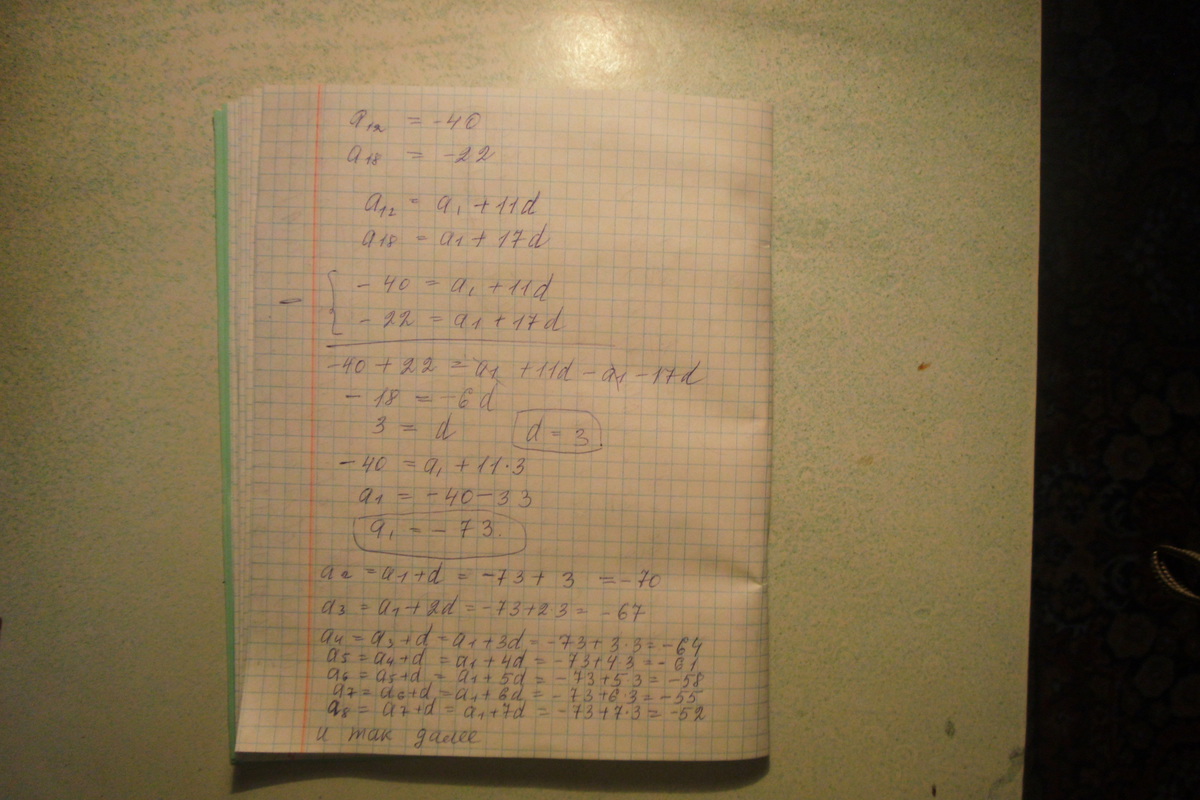 a₁₂ = -40
a₁₈ = -22
a₁₂ = a₁ + 11d
a₁₈ = a₁ + 17d
- { -40 = a₁ + 11d
-22 = a₁ + 17d
-40 + 22 = a₁ + 11d - a₁ - 17d
-18 = -6d
3 = d d = 3.
-40 = a₁ + 11·3
a₁ = -40 - 33
a₁ = -73.
a₂ = a₁ + d = -73 + 3 = -70
a₃ = a₁ + 2d = -73 + 2·3 = -67
a₄ = a₃ + d = a₁ + 3d = -73 + 3·3 = -64
a₅ = a₄ + d = a₁ + 4d = -73 + 4·3 = -61
a₆ = a₅ + d = a₁ + 5d = -73 + 5·3 = -58
a₇ = a₆ + d = a₁ + 6d = -73 + 6·3 = -55
a₈ = a₇ + d = a₁ + 7d = -73 + 7·3 = -52
и так далее